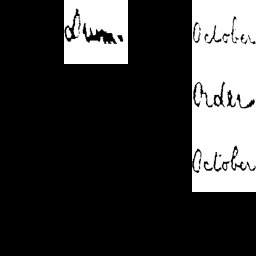 October
Order
October